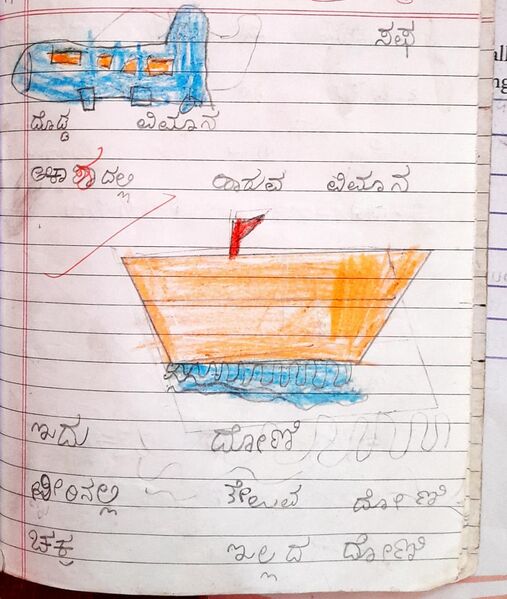 ಸಫ
ದೊಡ್ಡ ವಿಮಾನ
ಆಕಾಶದಲ್ಲಿ ಹಾರುವ ವಿಮಾನ
ಇದು ದೋಣಿ
ನೀರಿನಲ್ಲಿ ತೇಲುವ ದೋಣಿ
ಚಕ್ರ ಇಲ್ಲದ ದೋಣಿ